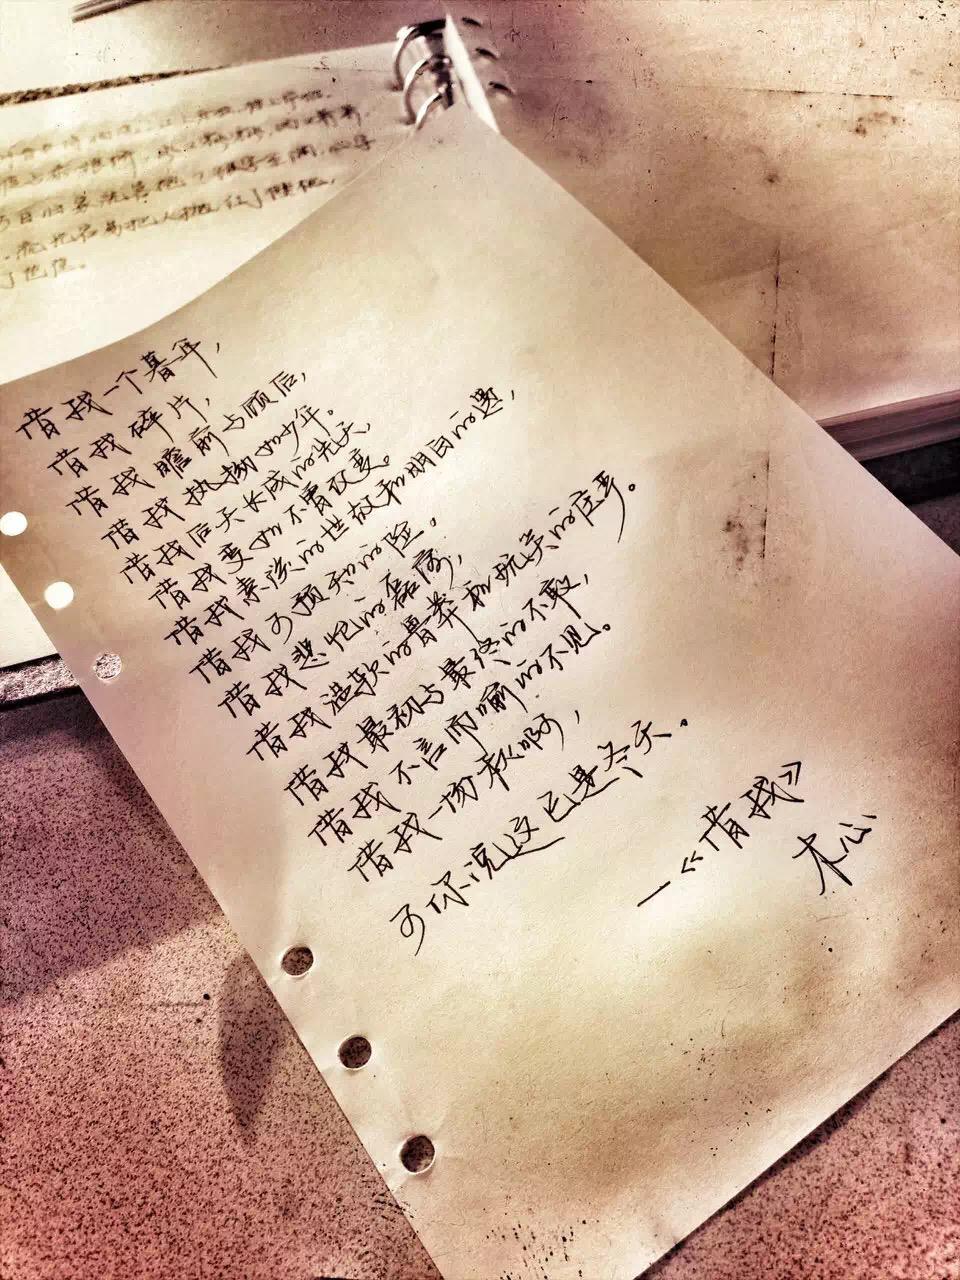 借我一个暮年,
借我碎片,
借我瞻前与顾后,
借我执拗如少年。
借我后天长成的先天,
借我变如不曾改变。
借我素淡的世故和明白的愚,
借我可预知的险。
借我悲怆的磊落,
借我温软的鲁莽和玩笑的庄严。
借我最初与最终的不敢,
借我不言而喻的不见。
借我一场秋啊,
可你说这已是冬天。
—《借我》
木心